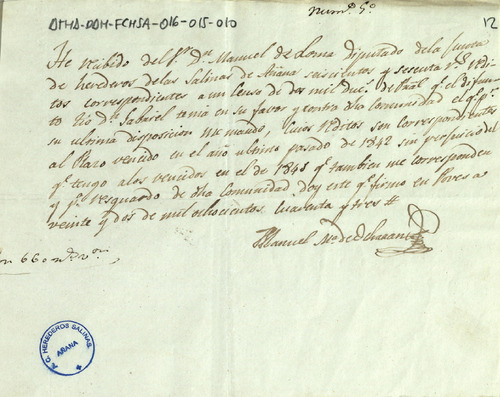 ATHA-DAH-FCHSA-016-015-010
Num.º 5.º
12
He recibido del S.r D.n Manuel de Loma Diputado dela Junta
de herederos delas Salinas de Añana seiscientos y sesenta r.s redi-
tos correspondientes a un Censo de dos mil duc.s de Pral q.e el difun-
to Tio D.n Gabriel tenia en su favor y contra dha Comunidad el q.e p.r
su ultima disposicion me mando, cuios reditos son correspondientes
al Plazo vencido en el año ultimo pasado de 1842 sin perjuicio del
q.e tengo alos vencidos en el de 1845 q.e tambien me corresponden
y p.a resguardo de dha Comunidad, doy este q.e firmo en Poves a
veinte y dos de mil ochocientos cuarenta y tres #
Manuel M.a de
Son 660 r.s v.on
A. C. HEREDEROS SALINAS.
AÑANA